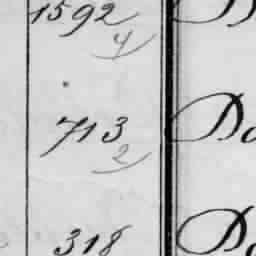 1592
4
713 Do
2
318 Do